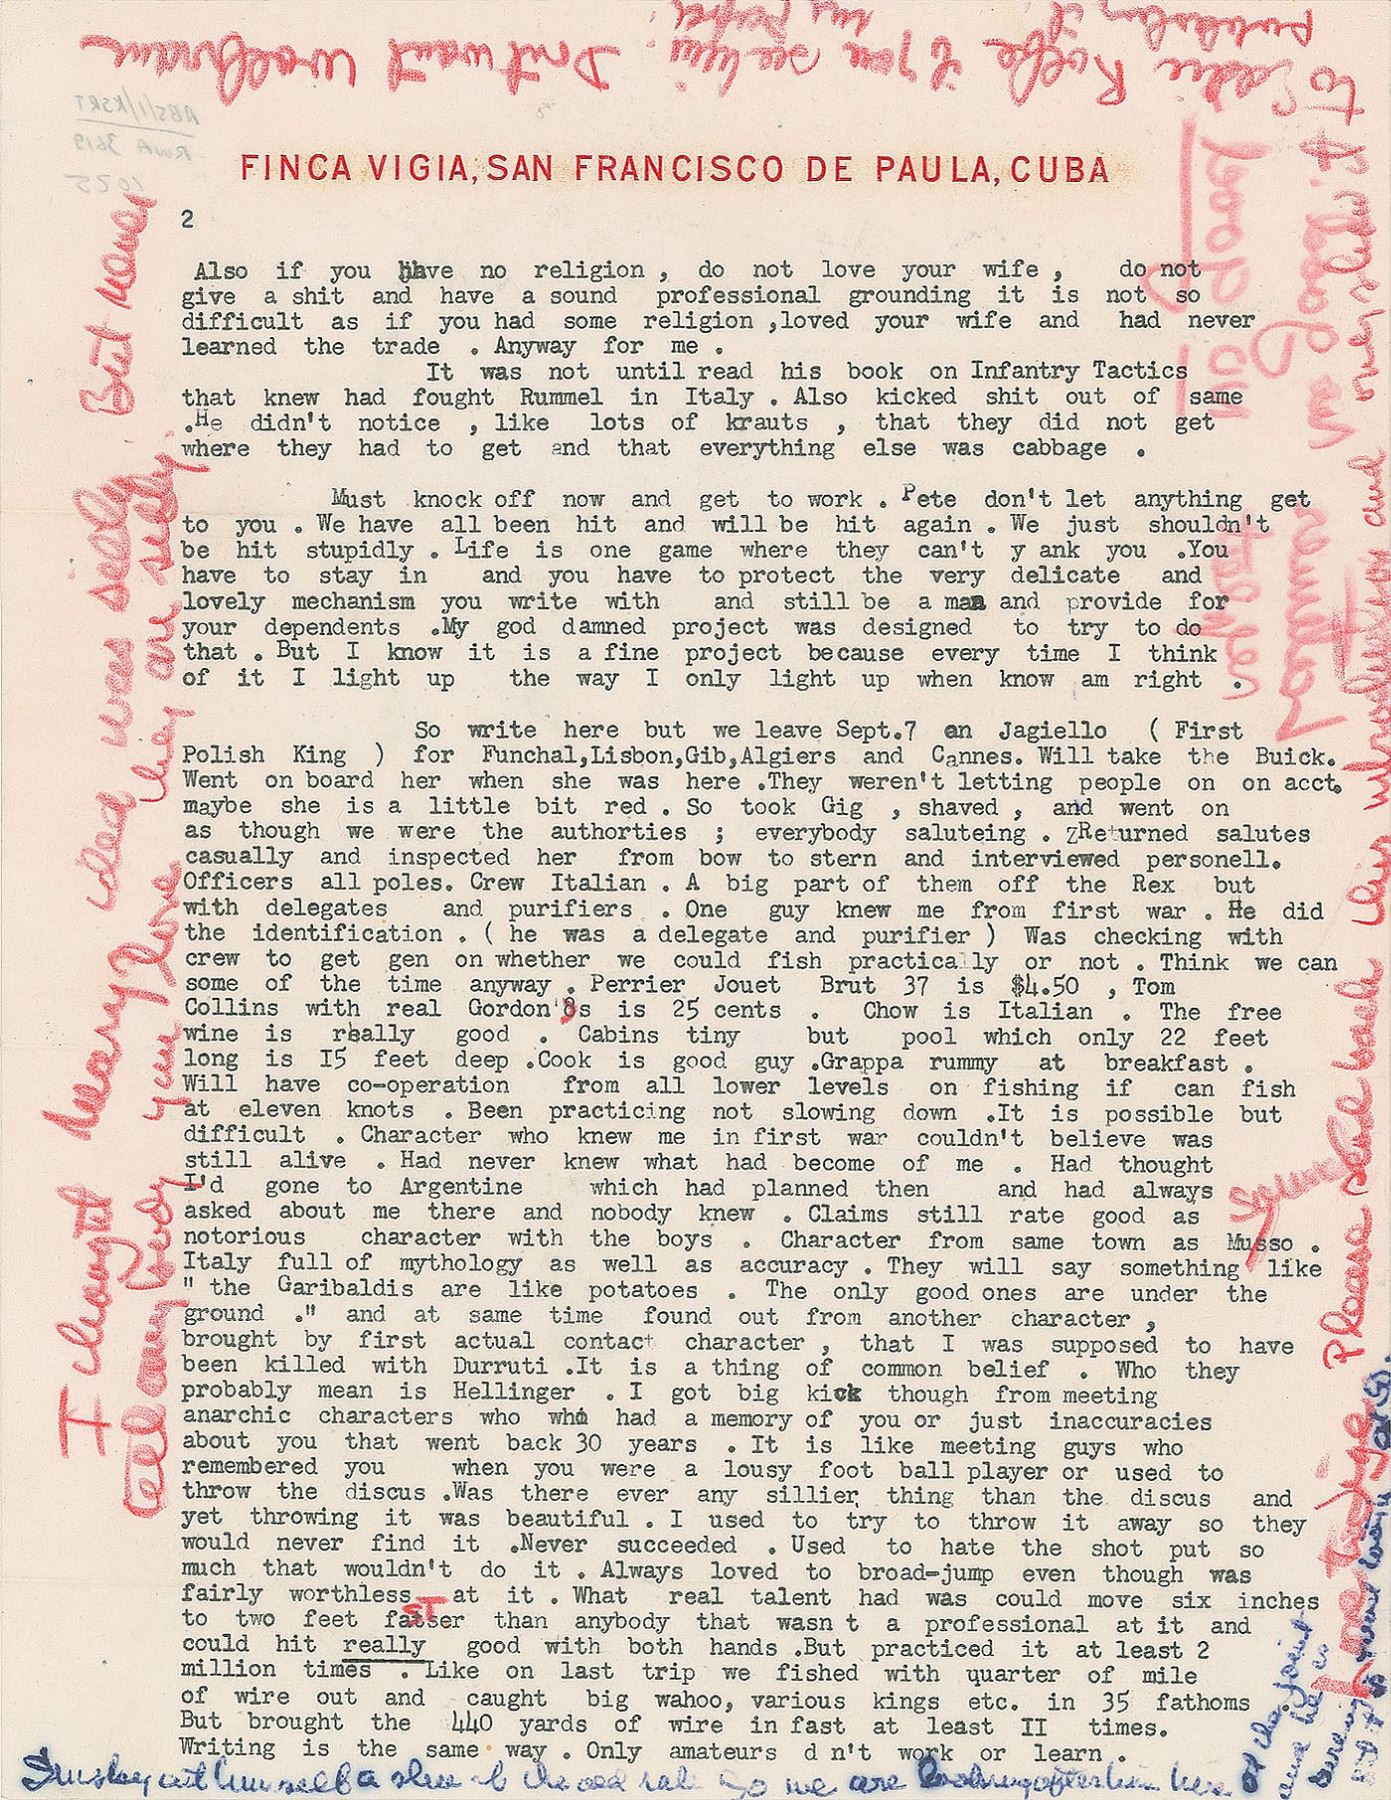 FINCA VIGIA, SAN FRANCISCO DE PAULA, CUBA
2
Also if you have no religion , do not love your wife , do not
give a shit and have a sound professional grounding it is not so
difficult as if you had some religion ,loved your wife and had never
learned the trade . Anyway for me .
It was not until read his book on Infantry Tactics
that knew had fought Rummel in Italy . Also kicked shit out of same
.He didn't notice , like lots of krauts , that they did not get
where they had to get and that everything else was cabbage .
Must knock off now and get to work . Pete don't let anything get
to you . We have all been hit and will be hit again . We just shouldn't
be hit stupidly . Life is one game where they can't y ank you .You
have to stay in and you have to protect the very delicate and
lovely mechanism you write with and still be a man and provide for
your dependents .My god damned project was designed to try to do
that . But I know it is a fine project because every time I think
of it I light up the way I only light up when know am right .
So write here but we leave Sept.7 on Jagiello ( First
Polish King ) for Funchal,Lisbon,Gib,Algiers and Cannes. Will take the Buick.
Went on board her when she was here .They weren't letting people on on acct.
maybe she is a little bit red . So took Gig , shaved , and went on
as though we were the authorties ; everybody saluteing . zReturned salutes
casually and inspected her from bow to stern and interviewed personell.
Officers all poles. Crew Italian . A big part of them off the Rex but
with delegates and purifiers . One guy knew me from first war . He did
the identification . ( he was a delegate and purifier ) Was checking with
crew to get gen on whether we could fish practically or not . Think we can
some of the time anyway . Perrier Jouet Brut 37 is $4.50 , Tom
Collins with real Gordon's is 25 cents . Chow is Italian . The free
wine is really good . Cabins tiny but pool which only 22 feet
long is I5 feet deep .Cook is good guy .Grappa rummy at breakfast .
Will have co-operation from all lower levels on fishing if can fish
at eleven knots . Been practicing not slowing down .It is possible but
difficult . Character who knew me in first war couldn't believe was
still alive . Had never knew what had become of me . Had thought
I'd gone to Argentine which had planned then and had always
asked about me there and nobody knew . Claims still rate good as
notorious character with the boys . Character from same town as Musso .
Italy full of mythology as well as accuracy . They will say something like
" the Garibaldis are like potatoes . The only good ones are under the
ground ." and at same time found out from another character ,
brought by first actual contact character , that I was supposed to have
been killed with Durruti .It is a thing of common belief . Who they
probably mean is Hellinger . I got big kick though from meeting
anarchic characters who who had a memory of you or just inaccuracies
about you that went back 30 years . It is like meeting guys who
remembered you when you were a lousy foot ball player or used to
throw the discus .Was there ever any sillier thing than the discus and
yet throwing it was beautiful . I used to try to throw it away so they
would never find it .Never succeeded . Used to hate the shot put so
much that wouldn't do it . Always loved to broad-jump even though was
fairly worthless at it . What real talent had was could move six inches
to two feet faster than anybody that wasn t a professional at it and
could hit really good with both hands .But practiced it at least 2
million times . Like on last trip we fished with quarter of mile
of wire out and caught big wahoo, various kings etc. in 35 fathoms
But brought the 440 yards of wire in fast at least II times.
Writing is the same way . Only amateurs d n't work or learn .
I thought Mary's idea was silly. Best Mary
silly.
Dont want
if you see him
Please send back this
and